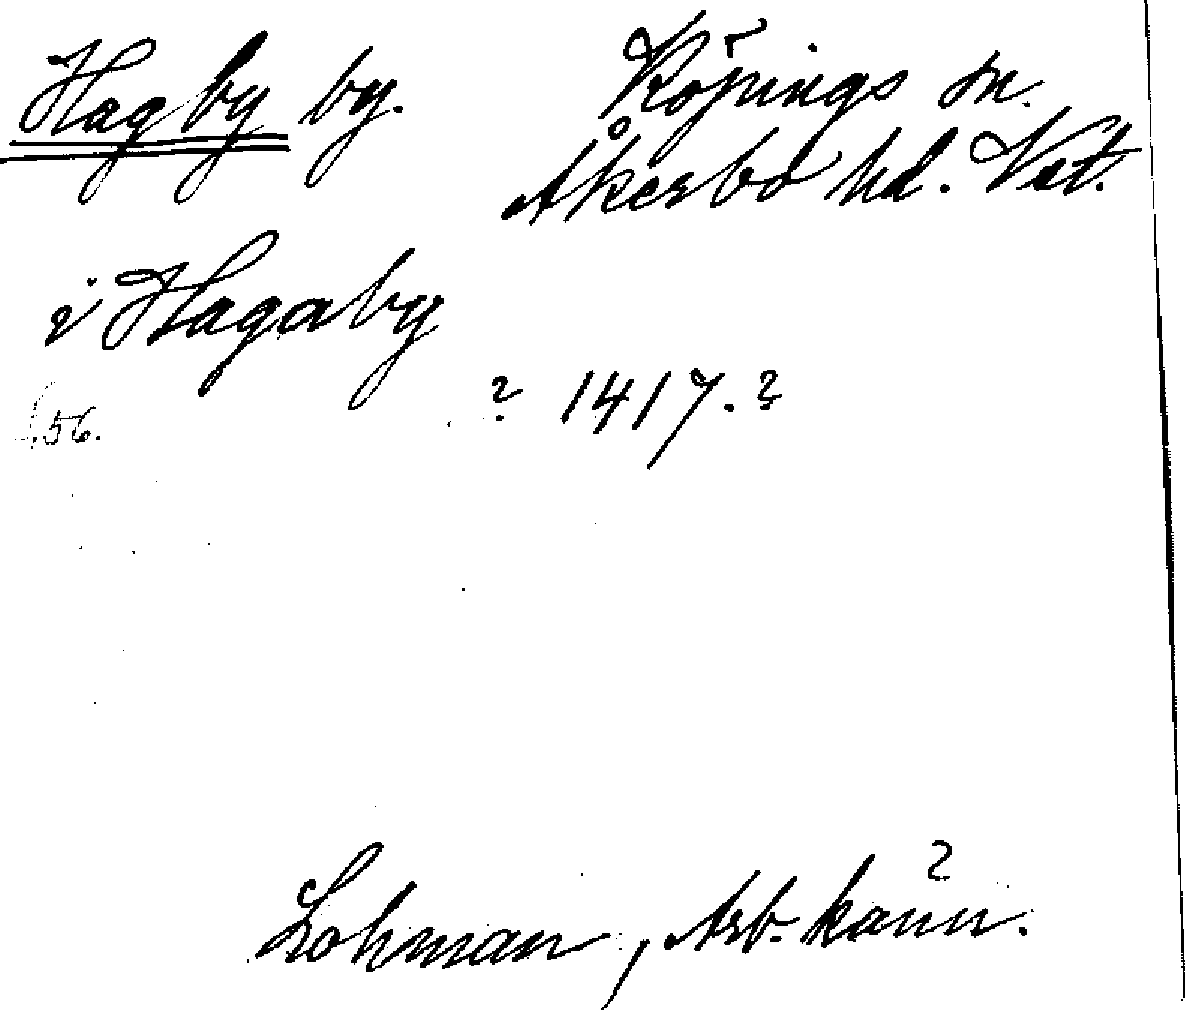 Hagby by. Köpings sn.
Åkerbo hd. Vst.
i Hagaby
56. ? 1417. ?
?
Lohman, Arb.